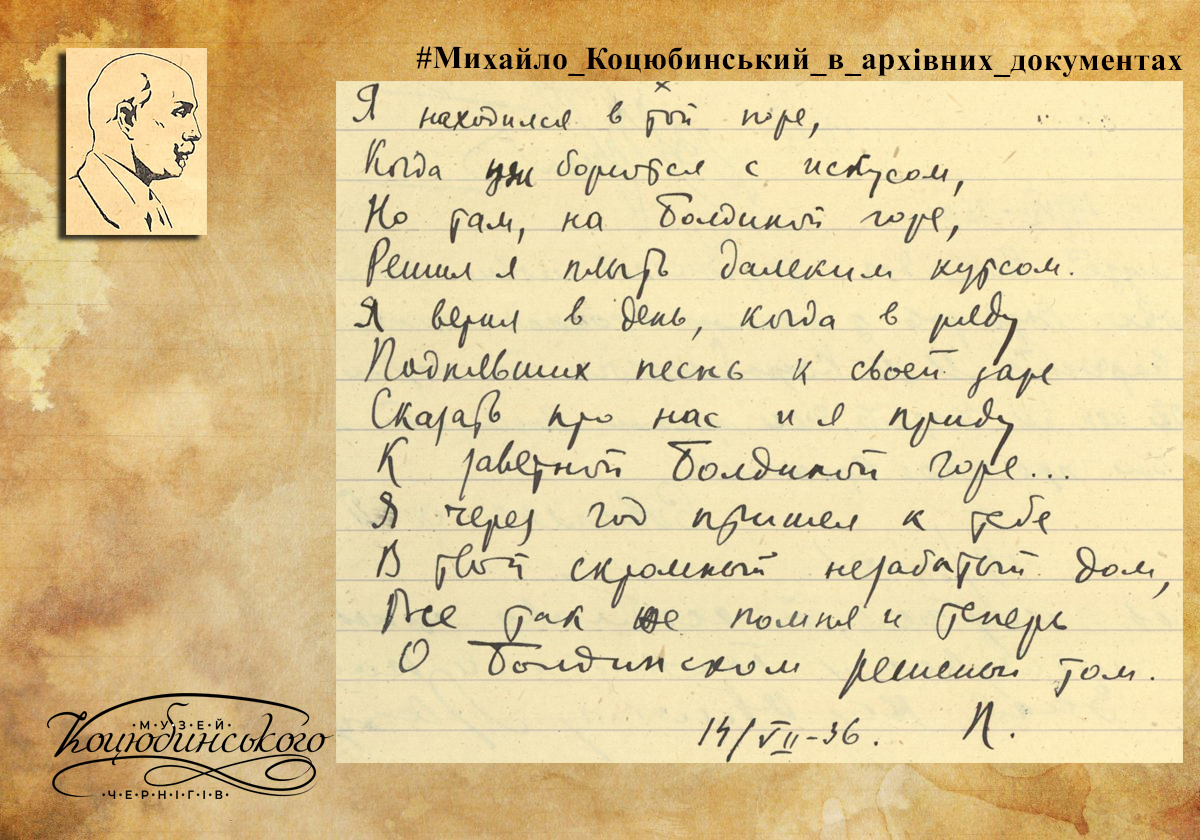 #Михайло_Коцюбинський_в_архівних_документах
Я находился в той поре,
Когда уж борются с искусом,
Но там, на Болдиной горе,
Решил я плыть далеким курсом.
Я верил в день, когда в ряду
Поднявших песнь к своей заре
Сказать про нас и я приду
К заветной Болдиной горе...
Я через год пришел к тебе
В твой скромный незабытый дом,
Все так же помня и теперь
О Болдинском решеньи том.
14/VII-36. П.
МУЗЕЙ
Коцюбинського
ЧЕРНІГІВ